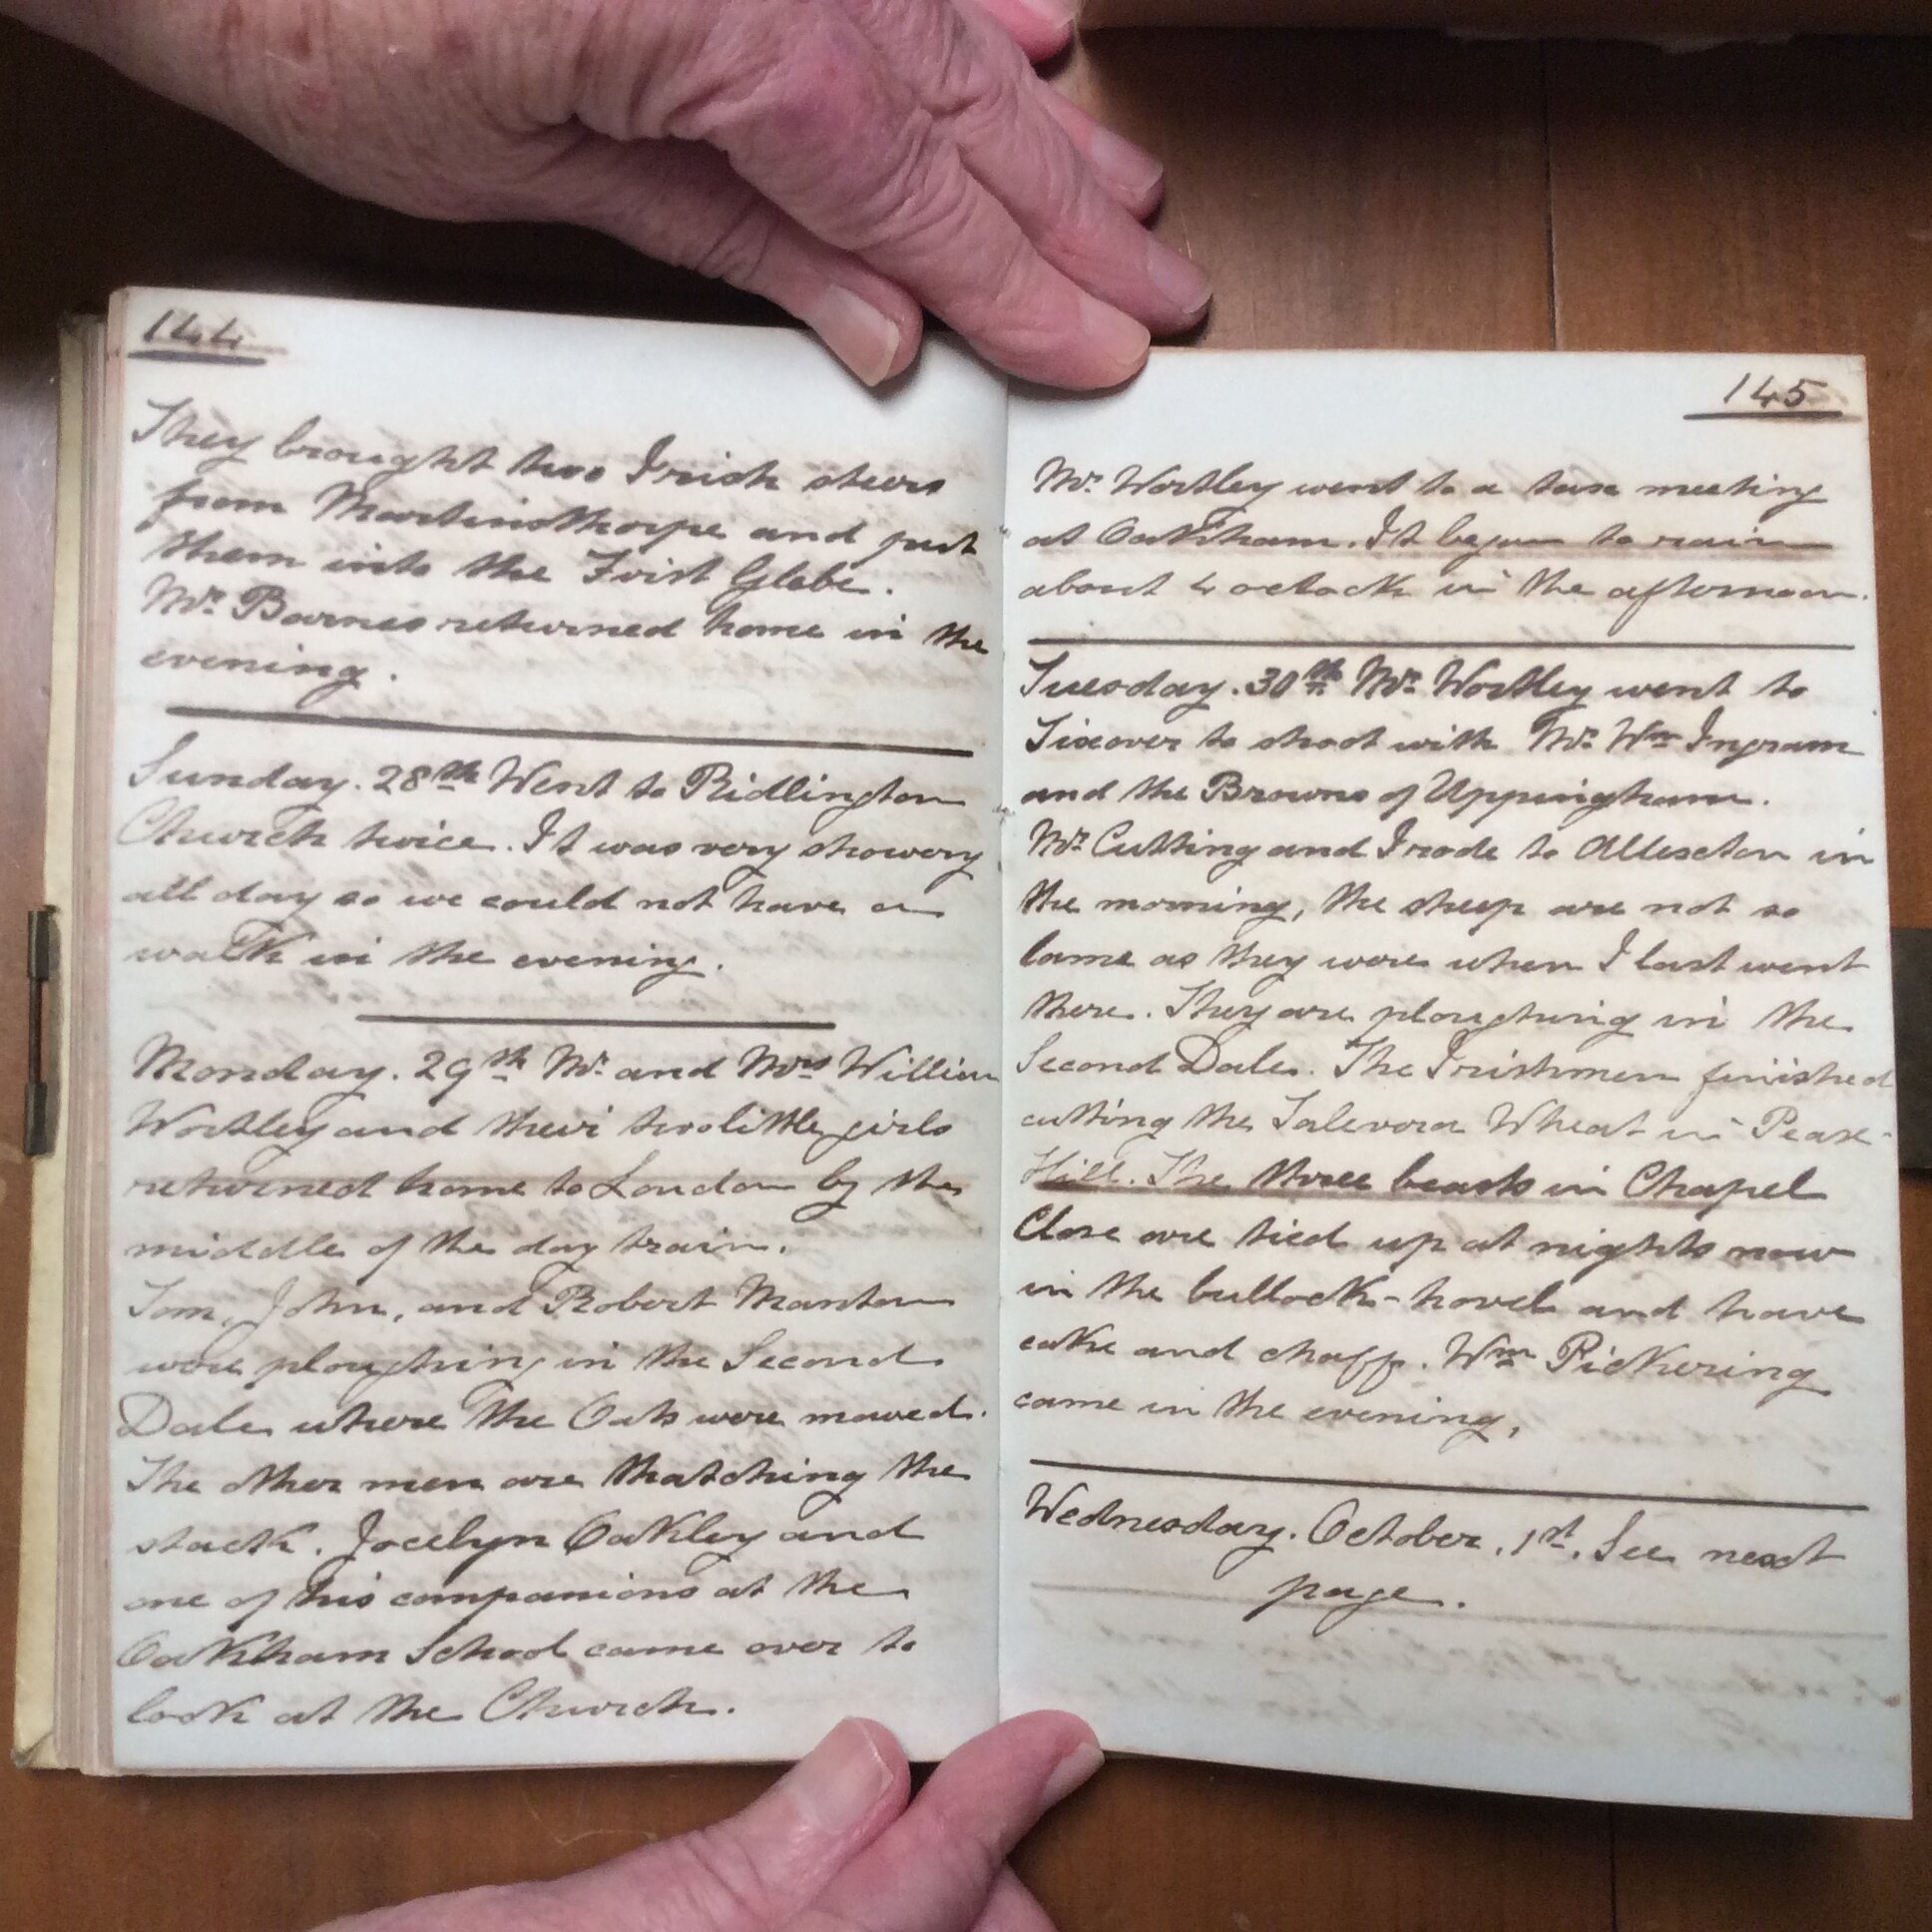 144
They brought two Irish steers
from Martinsthorpe and put
them into the First Glebe.
Mr. Barnes returned home in the
evening.
Sunday. 28th Went to Ridlington
Church twice. It was very showery
all day so we could not have a
walk in the evening.
Monday. 29th Mr. and Mrs William
Wortley and their two little girls
returned home to London by the
middle of the day train.
Tom, John, and Robert Manton
were ploughing in the Second
Dale where the Oats were mowed.
The other men are thatching the
stack. Jocelyn Oakley and
one of his companions at the
Oakham School came over to
look at the Church.
145
Mr. Wortley went to a tax meeting
at Oakham. It began to rain
about 4 oclock in the afternoon.
Tuesday. 30th Mr. Wortley went to
Tixover to shoot with Mr. Wm Ingram
and the Browns of Uppingham.
Mr. Cutting and I rode to Allexton in
the morning, the sheep are not so
lame as they were when I last went
there. They are ploughing in the
Second Dale. The Irishmen finished
cutting the Talevora Wheat in Pease-
Hill. The three beasts in Chapel
Close are tied up at nights now
in the bullock-hovel and have
cake and chaff. Wm Pickering
came in the evening.
Wednesday. October. 1st. See next
page.